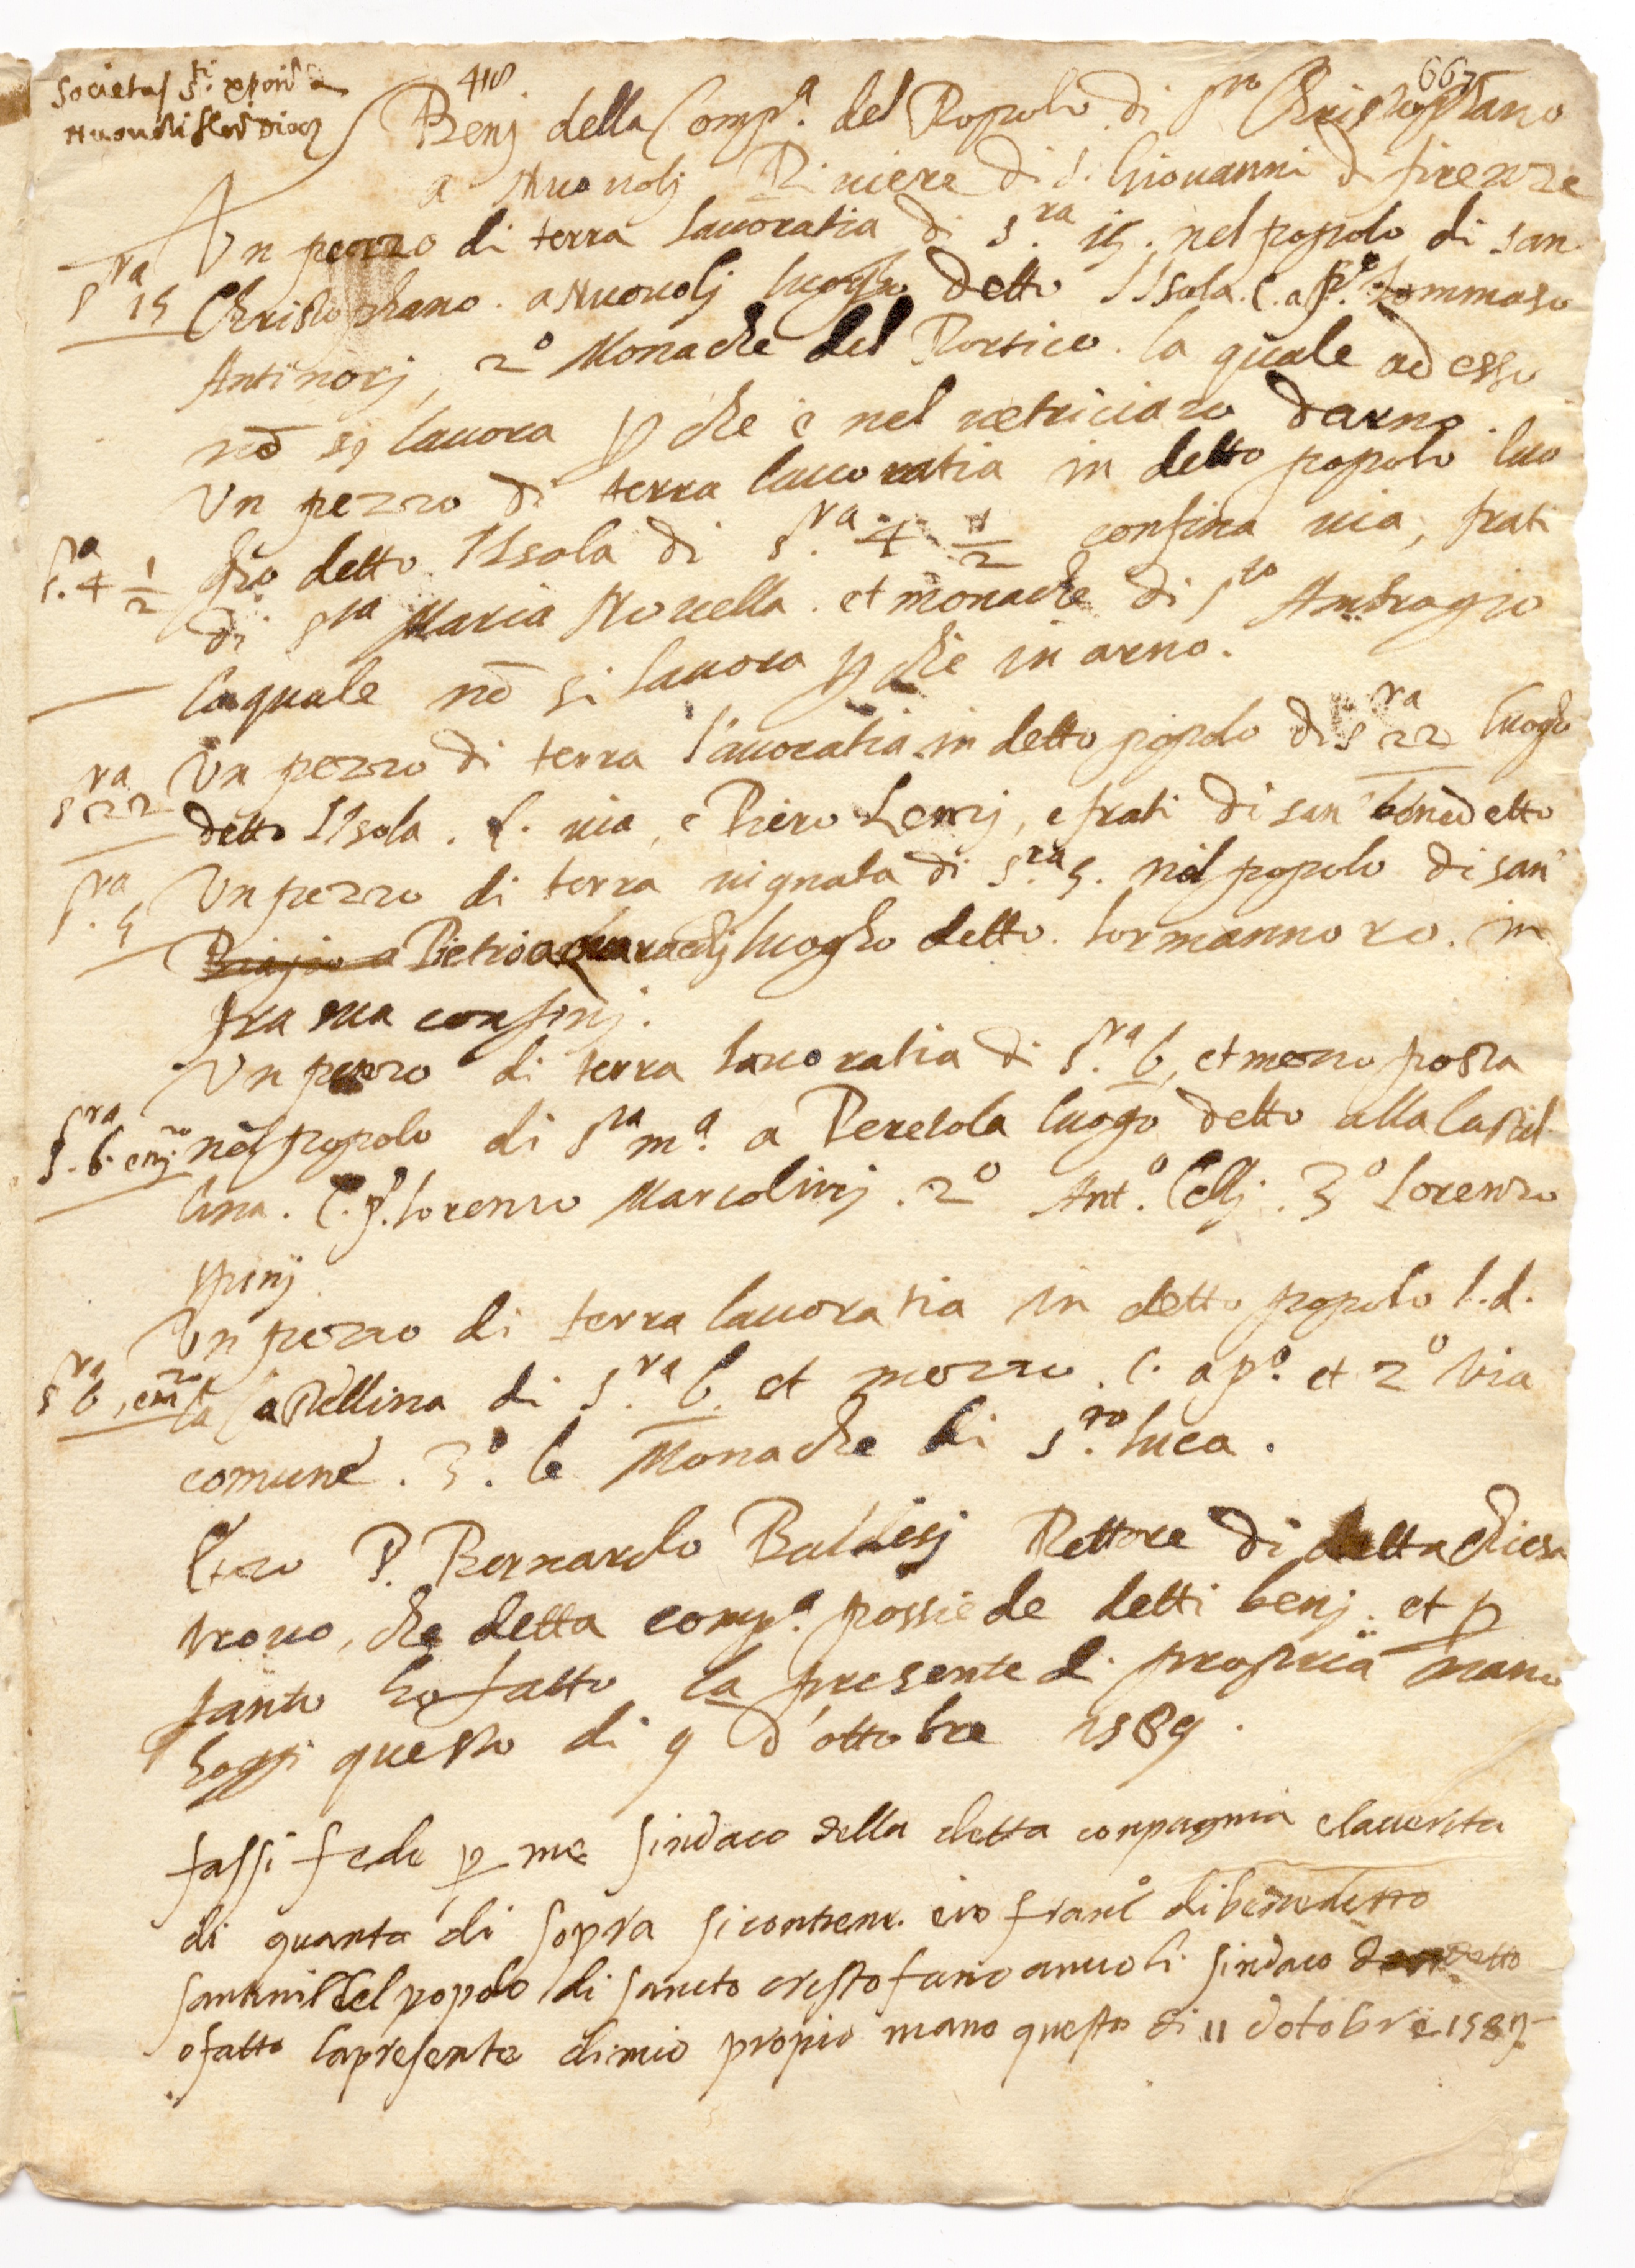 Societas S.ti xpori a
Nuouoli flor Dioc
418
667
Benj della Comp.a del Popolo di S.to Christophano
a Nuouolj Piuiere di S. Giouanni di firenze
Un pezzo di terra lauoratia di s.ra 15. nel popolo di san
s.ra 15
Christophano. a Nuouolj luogho detto l'Isola. C. a p.o Tommaso
Antinorj, 2.o Monache del Portico. la quale adesso
nō si lauora p che è nel uetriciaio d'arno.
Un pezzo di terra lauoratia in detto popolo luo
s.ra 4 1/2
gho detto l'Isola di s.ra 4 1/2 confina uia, frati
di s.ta Maria Nouella. et monache di s.to Ambrogio
laquale nō si lauora p che in arno.
Un pezzo di terra lauoratia in detto popolo di s.ra 22 luogho
s.ra 22
detto l'Isola. C. uia, e Piero Lenzj, e frati di san benedetto
Un pezzo di terra uignata di s.ra 5. nel popolo di san
s.ra 5
Biagio a Pietro a quarachj luogho detto. lormannoro. in
fra sua confinj.
Un pezzo di terra lauoratia di s.ra 6, et mezzo posta
s.ra 6. e m.zo
nel popolo di s.ta m.a a Peretola luogo detto alla Castel
lina. C. p.o lorenzo Marcolinj. 2.o Ant.o Cellj. 3.o Lorenzo
spinj
Un pezzo di terra lauoratia in detto popolo l.d.
s.ra 6, e m.zo
la Castellina di s.ra 6. et mezzo. C. a p.o et 2.o Via
comune. 3.o le Monache di s.to luca.
Io P. Bernardo Baldesj Rettore di detta chiesa
trouo, che detta comp.a possiede detti benj. et p
tanto ho fatto la presente di propria mano
hoggi questo di 9 d'ottobre 1589.
fassi fede p me sindaco della detta conpagnia e la uerita
di quanto di sopra si contiene. e io fran.co di benedetto
del popolo di santo cristofano a nuuoli sindaco detto
o fatto la presente di mio propio mano questo di 11 d otobre 1589